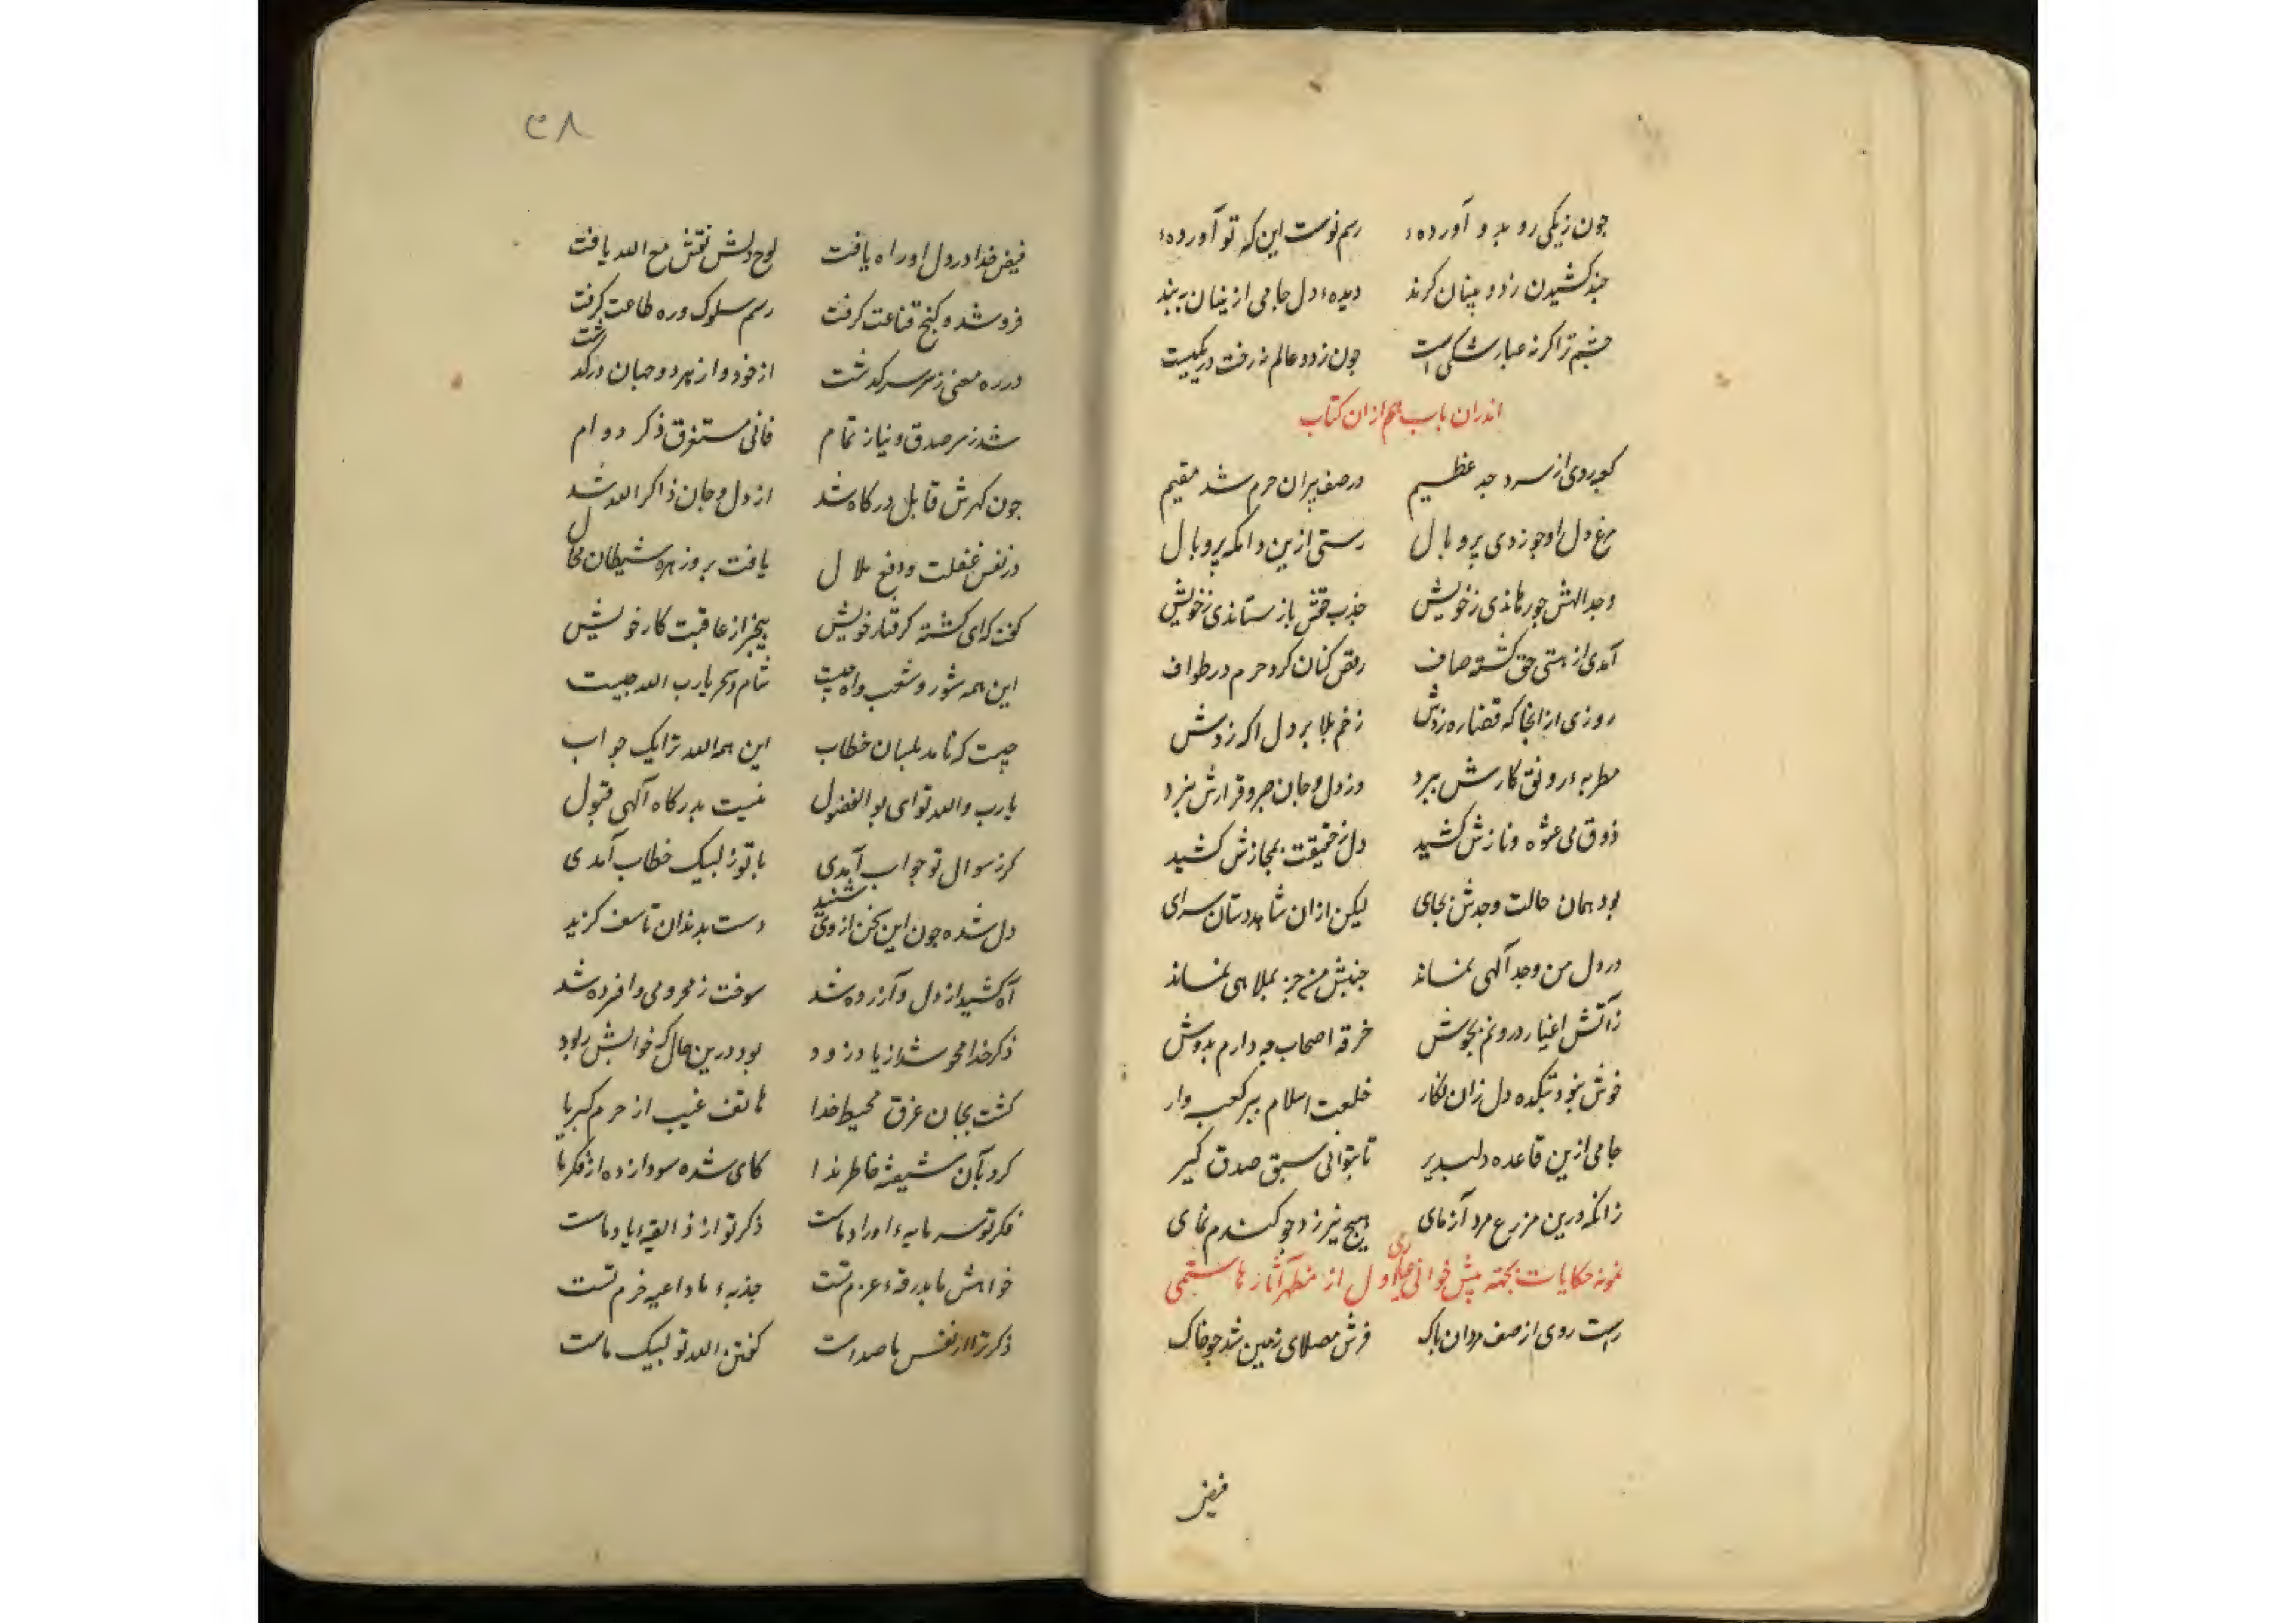 چون زیکی رو بدو آورده‌ء رسم نوست این که تو آورده‌ء
چند کشیدن ز دو بینان کزند دیده‌ء دل جامی ازینان ببند
چشم ترا کر نه غبار شکی است چون ز دو عالم نه رخت در یکیست
اندران باب هم ازان کتاب
کجروی از سرد جد عظیم در صف پیران حرم شد مقیم
مرغ دل او چو زدی پر و بال رستی ازین دامکه پر وبال
وجد الهش چو رهاندی ز خویش جذب حقش باز ستاندی ز خویش
آمدی از هستی حق کشته صاف رقص کنان کرد حرم در طواف
روزی از انجا که قضا ره زدش زخم بلا بر دل اکه زدش
مطربه‌ء رونق کارش ببرد وز دل و جان صبر و قرارش ببرد
ذوق می عشوه و نازش کشید دل ز حقیقت بمجازش کشید
بود همان حالت وجدش بجای لیکن ازان شاهد دستان سرای
در دل من وجد آلهی نماند جنبش من جز بملاهی نماند
ز آتش اغیار درونم بجوش خرقه اصحاب چه دارم بدوش
خوش نبود بتکده دل زان نکار خلعت اسلام ببر کعبه وار
جامی ازین قاعده دلپذیر تا بتوانی سبق صدق کیر
زانکه درین مزرع مرد آزمای هیچ نیرزد جو کندم نمای
نمونه حکایات بجهه پیش خوانی جلد اول از مظهر آثار هاشمی
راست روی از صف مردان پاک فرش مصلای زمین شد چو خاک
فیض
۳۸
فیض خدا در دل او راه یافت لوح دلش نقش مع الله یافت
فرو شد و کنج قناعت کرفت رسم سلوک و ره طاعت کرفت
در ره معنی ز سر سر کذشت از خود و از هر دو جهان در کذشت
شد ز سر صدق و نیاز تمام فانی مستغرق ذکر دوام
چون کهرش قابل درکاه شد از دل و جان ذاکر الله شد
در نفس غفلت و دفع ملال یافت برو زهره شیطان مجال
کفت که ای کشته کرفتار خویش بیخبر از عاقبت کار خویش
این همه شور و شعب و آه چیست شام و سحر یارب الله چیست
چیست که نامد بلبان خطاب این همه الله ترا یک جواب
یارب و الله تو ای بو الفضول نیست بدرکاه آلهی قبول
کر ز سوال تو جواب آمدی با تو ز لبیک خطاب آمدی
دل شده چون این سخن از وی شنید دست بدندان تاسف کزید
آه کشید از دل و آزرده شد سوخت ز محرومی و افسرده شد
ذکر خدا محو شد از یاد زود بود درین حال که خوابش ربود
کشت بجان غرق محیط خدا هاتف غیب از حرم کبریا
کرد بآن شیفته خاطر ندا کای شده سودا زده از فکر ما
فکر تو سرمایه‌ء اوراد ماست ذکر تو از ذایقه‌ء یاد ماست
خواهش ما بدرقه‌ء عزم تست جذبه‌ء ما داعیه حزم تست
ذکر ترا از نفس ما صداست کفتن الله تو لبیک ماست